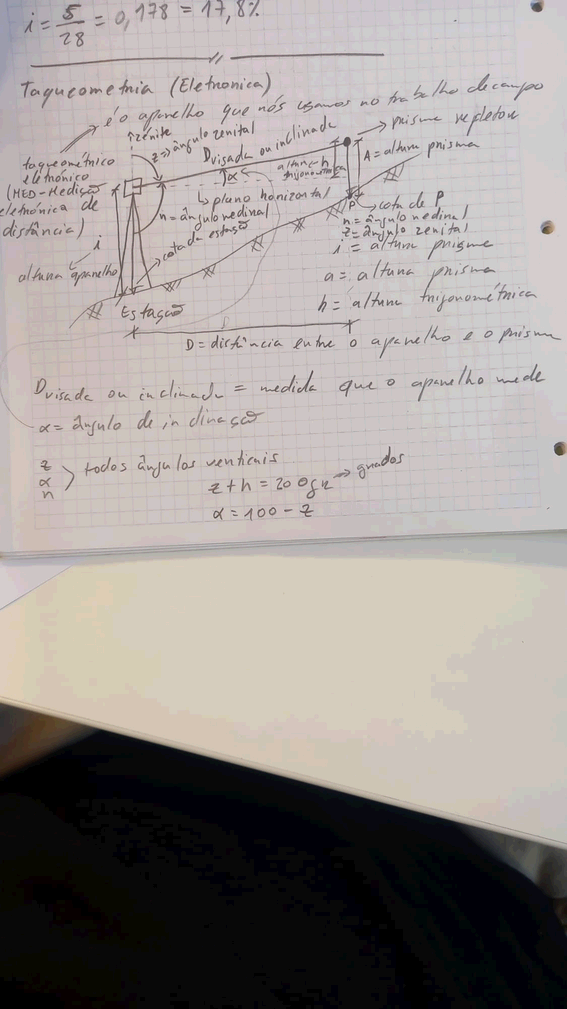 i = 5/28 = 0,178 = 17,8%
Taqueometria (Eletronica)
é o aparelho que nós usamos no trabalho de campo
zénite
z → ângulo zenital
Dvisada ou inclinada
prisma refletor
taqueométrico
eletrónico
(MED - Medição
eletrónica de
distância)
α
altura h
trigonométrica
A = altura prisma
plano horizontal
n = ângulo nedinal
cota da estação
i
altura aparelho
Estação
P
cota de P
n = ângulo nedinal
z = ângulo zenital
i = altura prisma
a = altura prisma
h = altura trigonométrica
D = distância entre o aparelho e o prisma
Dvisada ou inclinada = medida que o aparelho mede
α = ângulo de inclinação
z
α
n
todos ângulos verticais
z + n = 200gr → grados
α = 100 - z